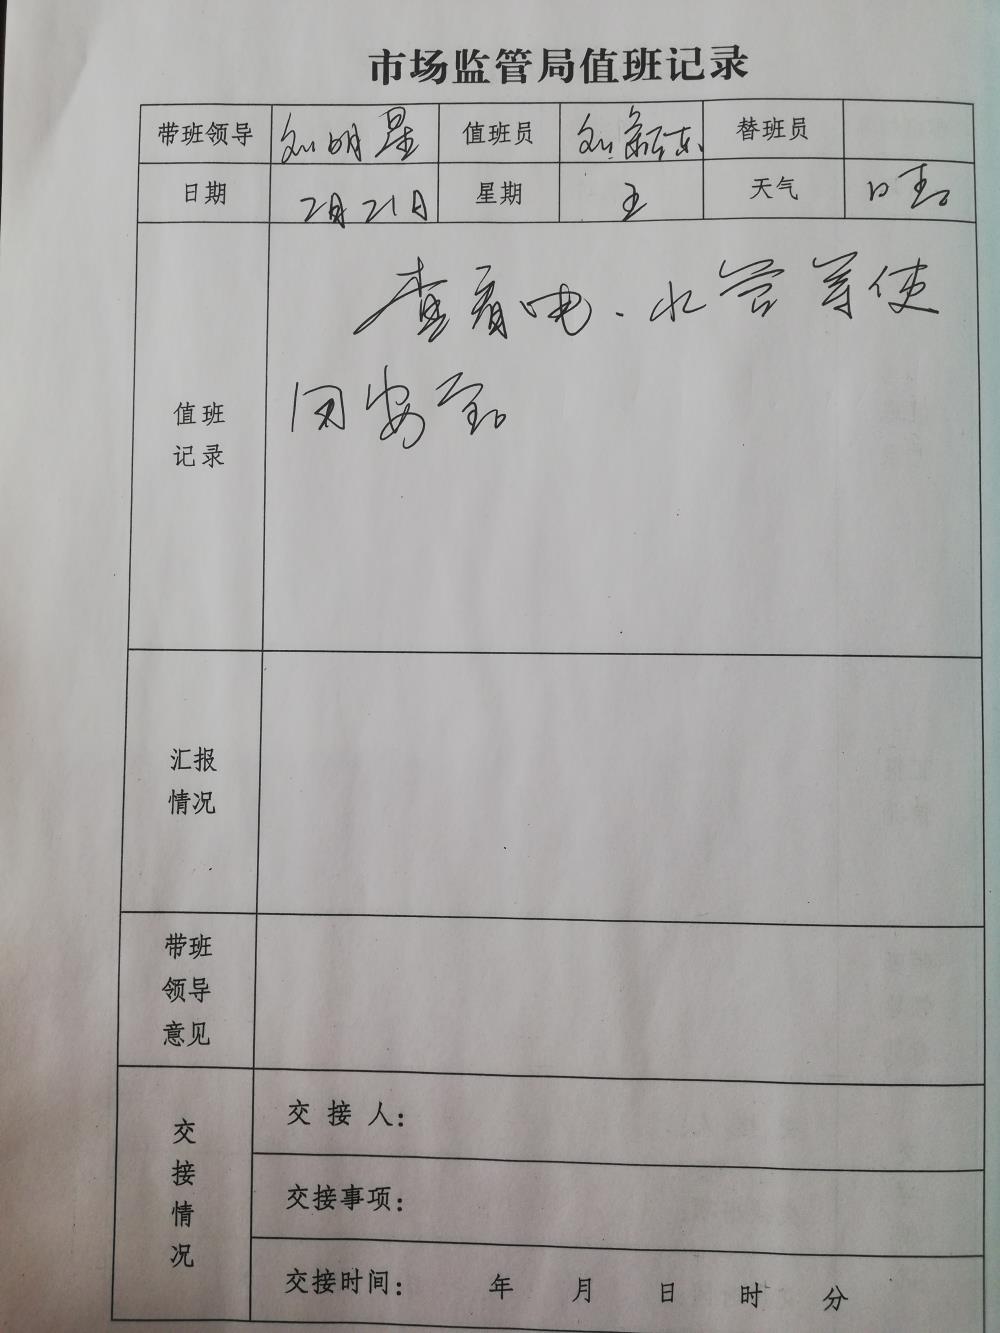 市场监管局值班记录
带班领导 刘明星 值班员 刘新东 替班员
日期 2月21日 星期 五 天气 晴
值班记录
查看电、水管等使
用安全
汇报情况
带班领导意见
交接情况
交接人：
交接事项：
交接时间： 年 月 日 时 分